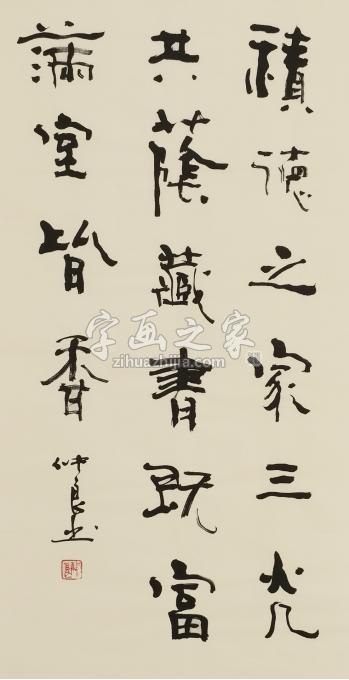 積德之家三光
共蔭藏書既富
滿室皆香
仲良书
字画之家
zihuazhijia.com